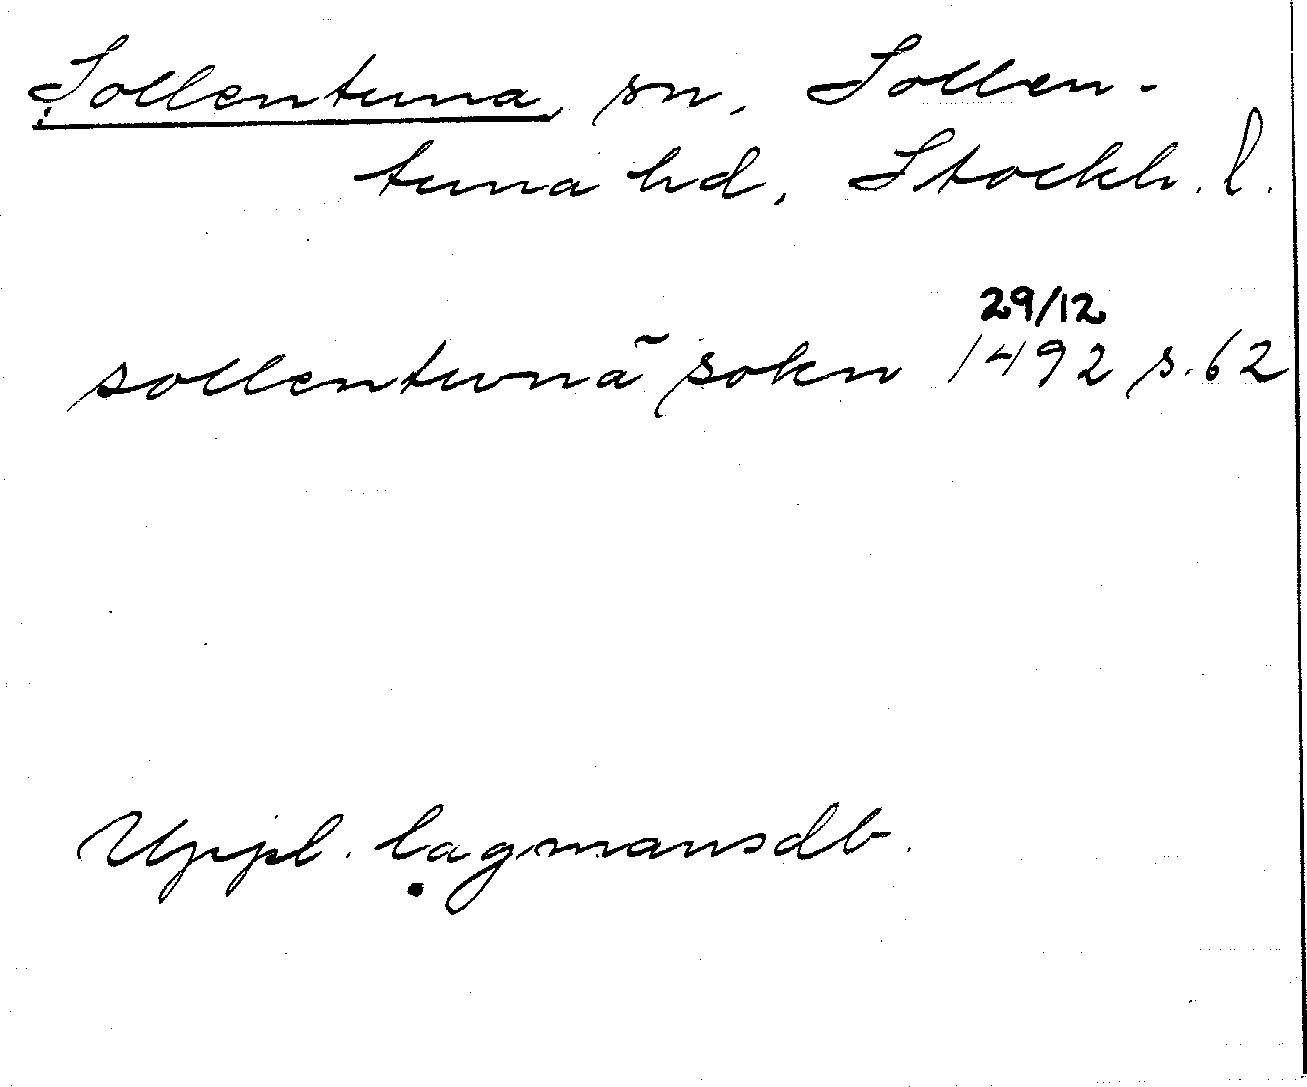 Sollentuna, sn, Sollen-
tuna hd, Stockh. l.
29/12
sollentvnã sokn 1492 s. 62
Uppl. lagmansdb.